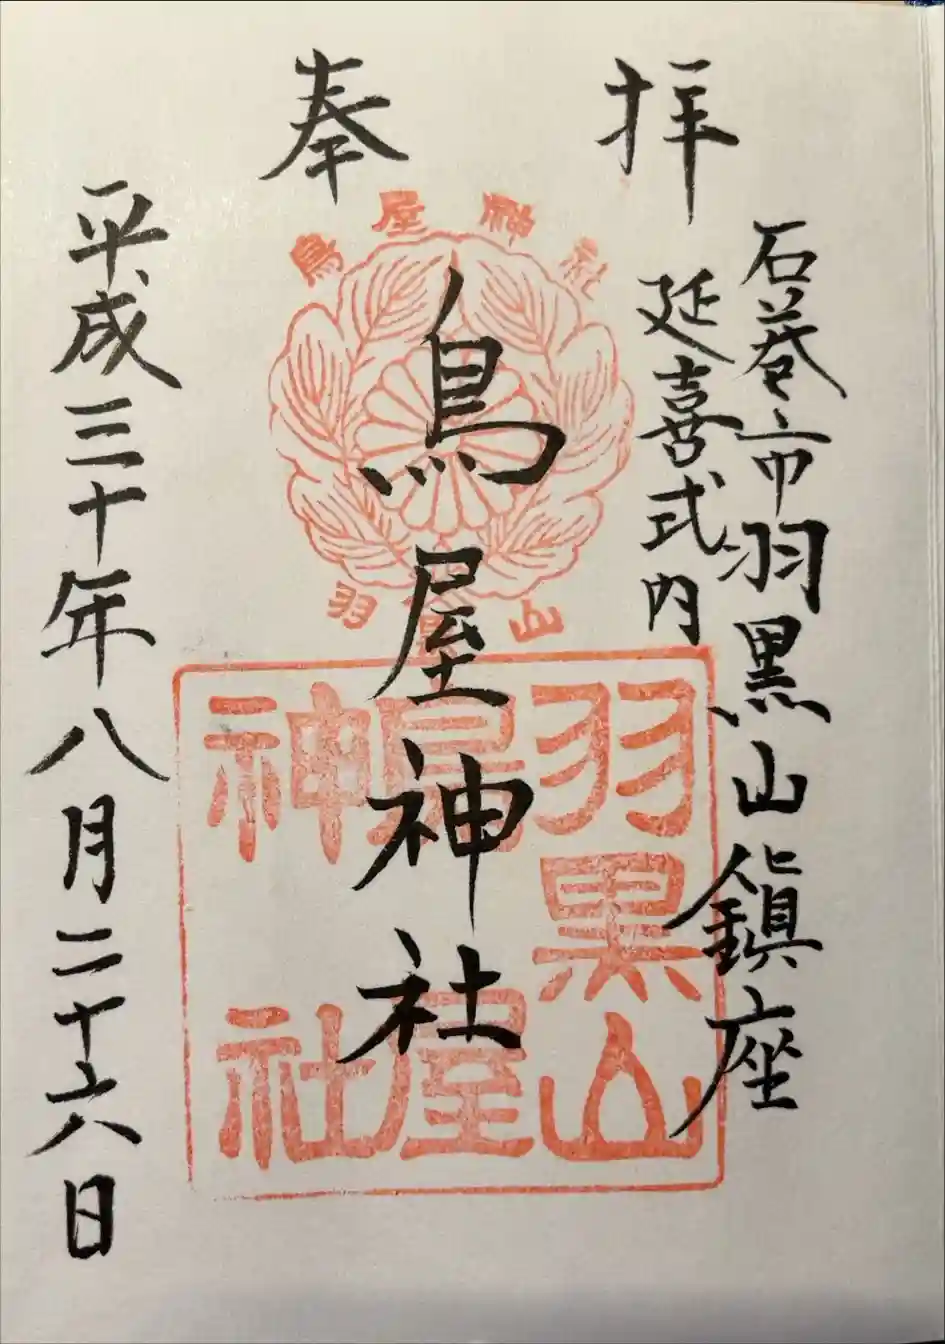 奉拝
石巻市羽黒山鎮座
延喜式内
鳥屋神社
平成三十年八月二十六日
鳥屋神社
羽黒山
羽黒山
鳥屋
神社